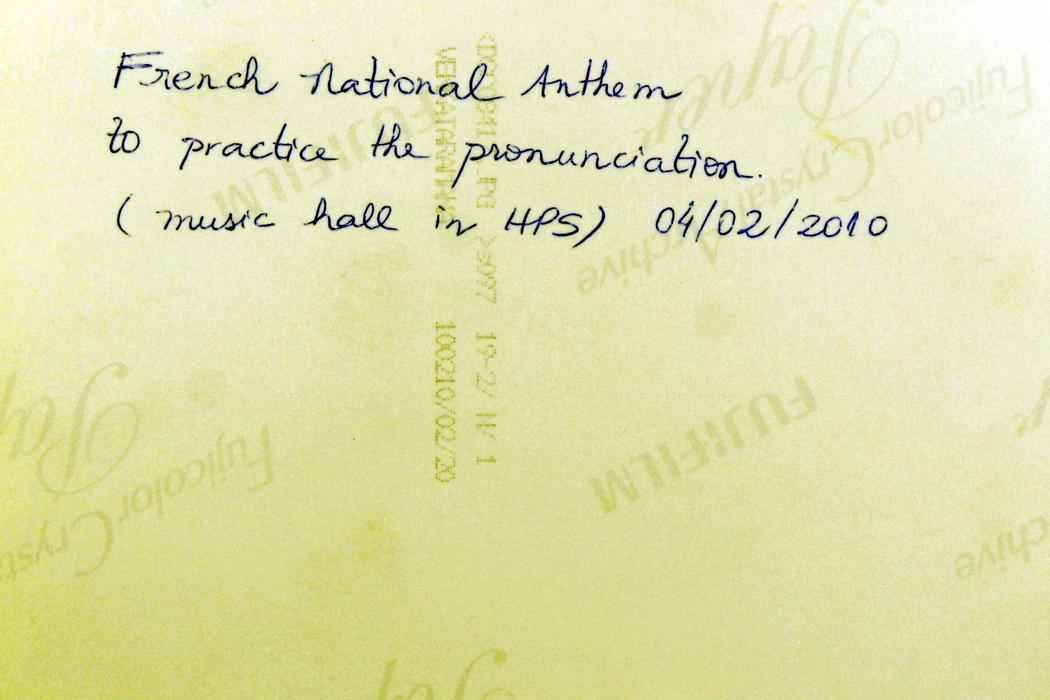 French National Anthem
to practice the pronunciation.
( music hall in HPS) 04/02/2010
FUJIFILM
Fujicolor Crystal
Archive
Paper
FUJIFILM
Fujicolor Crysta
Pap
chive
19-2/
100210/02/20